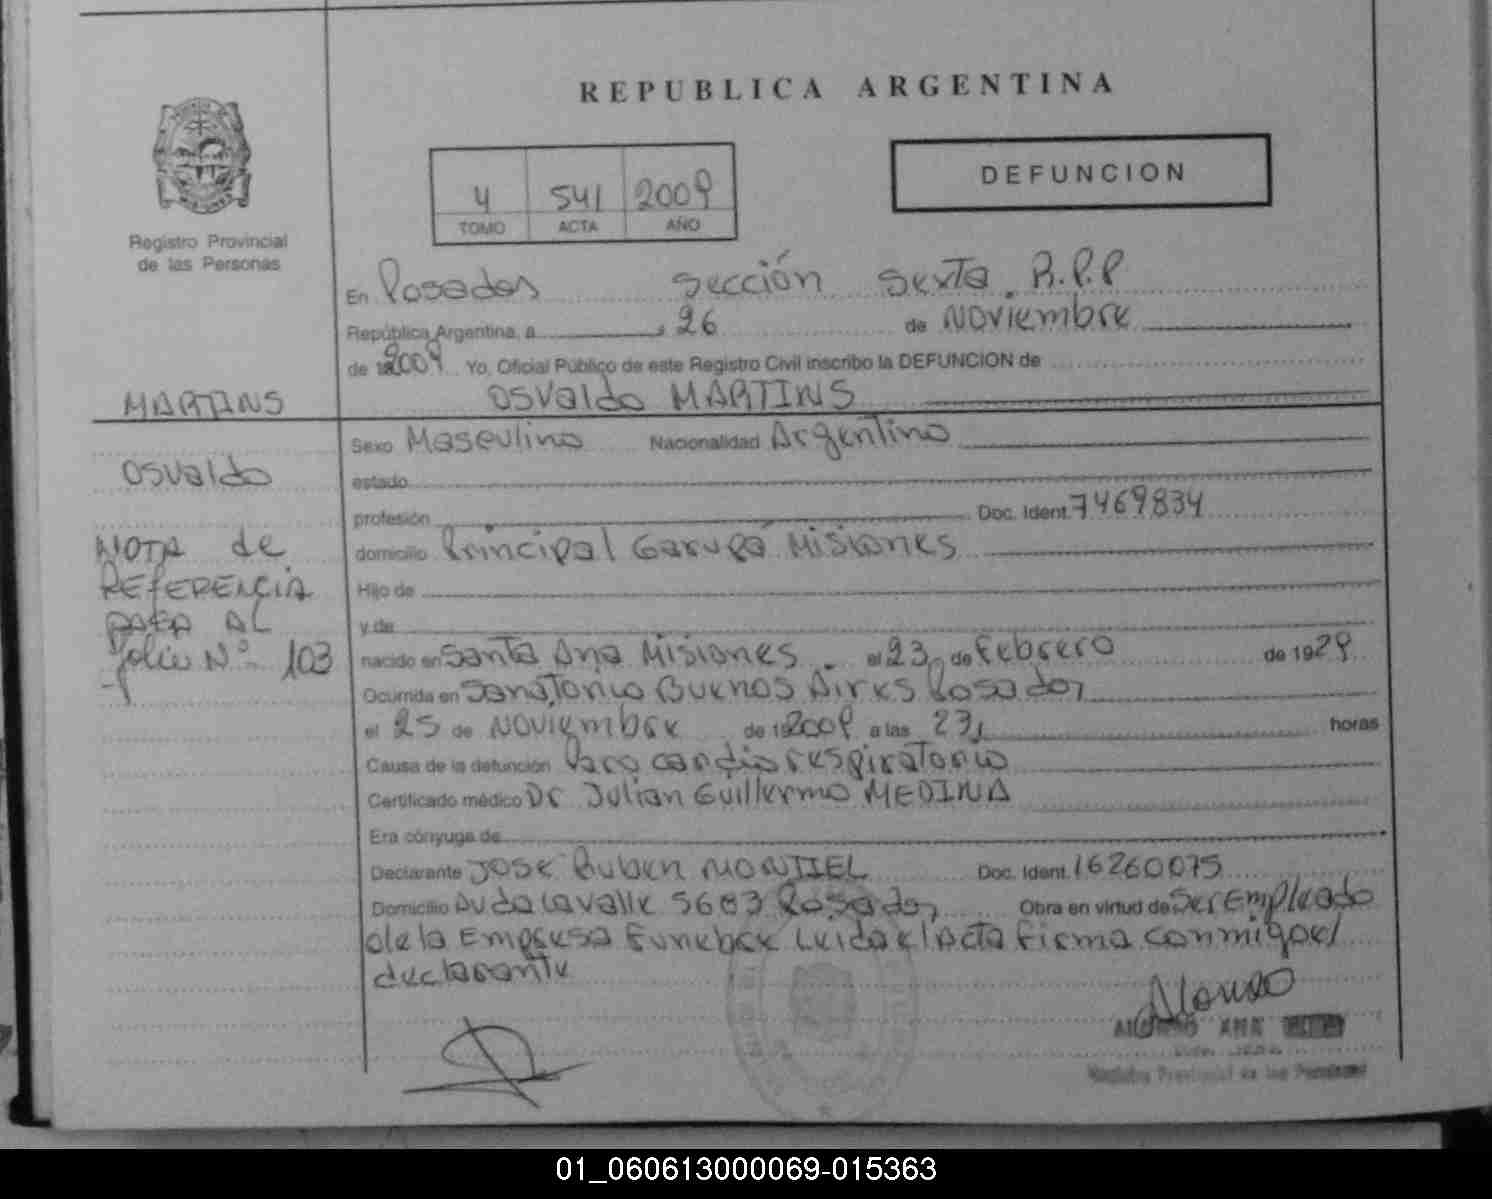 REPUBLICA ARGENTINA
4 541 2009
TOMO ACTA AÑO
DEFUNCION
Registro Provincial
de las Personas
En Posadas Sección Sexta. R.P.P
República Argentina, a 26 de Noviembre
de 2009 Yo, Oficial Público de este Registro Civil inscribo la DEFUNCION de
Osvaldo MARTINS
MARTINS
Osvaldo
NOTA de
REFERENCIA
PASA AL
folio Nº 103
Sexo Masculino Nacionalidad Argentino
estado
profesión Doc. Ident. 7469834
domicilio Principal Garupá Misiones
Hijo de
y de
nacido en Santa Ana Misiones. el 23 de Febrero de 1929
Ocurrida en Sanatorio Buenos Aires Posadas
el 25 de Noviembre de 2009 a las 23, horas
Causa de la defunción Paro cardio respiratorio
Certificado médico Dr Julian Guillermo MEDINA
Era cónyuge de
Declarante José Ruben MONTIEL Doc. Ident. 16260075
Domicilio Avda Lavalle 5603 Posadas Obra en virtud de Ser Empleado
de la Empresa Funebre Leida el Acta firma conmigo el
declarante
Alonso
ANA
Registro Provincial de las Personas
01_060613000069-015363